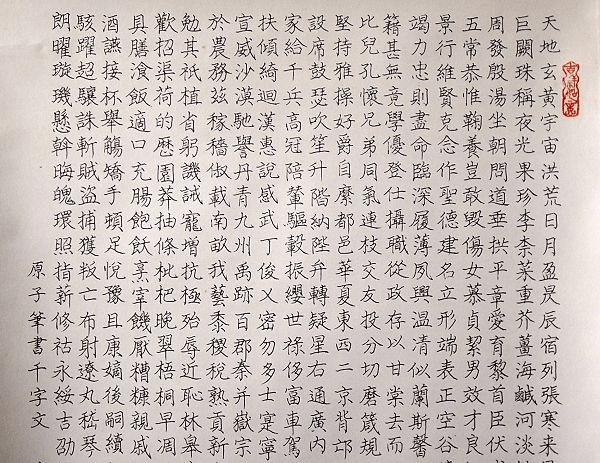 天地玄黃宇宙洪荒日月盈昃辰宿列張寒来
巨闕珠稱夜光果珍李柰菜重芥薑海鹹河淡
周發殷湯坐朝問道垂拱平章愛育黎首臣伏
五常恭惟鞠養豈敢毀傷女慕貞絜男效才良
景行維賢克念作聖德建名立形端表正空谷
竭力忠則盡命臨深履薄夙興温凊似蘭斯馨
籍甚無竟學優登仕攝職從政存以甘棠去而
比兒孔懷兄弟同氣連枝交友投分切磨箴規
堅持雅操好爵自縻都邑華夏東西二京背邙
設席鼓瑟吹笙升階納陛弁轉疑星右通廣內
家給千兵高冠陪輦驅轂振纓世祿侈富車駕
扶傾綺迴漢惠說感武丁俊乂密勿多士寔寧
宣威沙漠馳譽丹青九州禹跡百郡秦并嶽宗
於農務茲稼穡俶載南畝我藝黍稷稅熟貢新
勉其祗植省躬譏誡寵增抗極殆辱近恥林皋
歡招渠荷的歷園莽抽條枇杷晚翠梧桐早凋
具膳飡飯適口充腸飽飫烹宰饑厭糟糠親戚
酒讌接杯舉觴矯手頓足悅豫且康嫡後嗣續
駭躍超驤誅斬賊盜捕獲叛亡布射遼丸嵇琴
朗曜璇璣懸斡晦魄環照指薪修祜永綏吉劭
原子筆書千字文